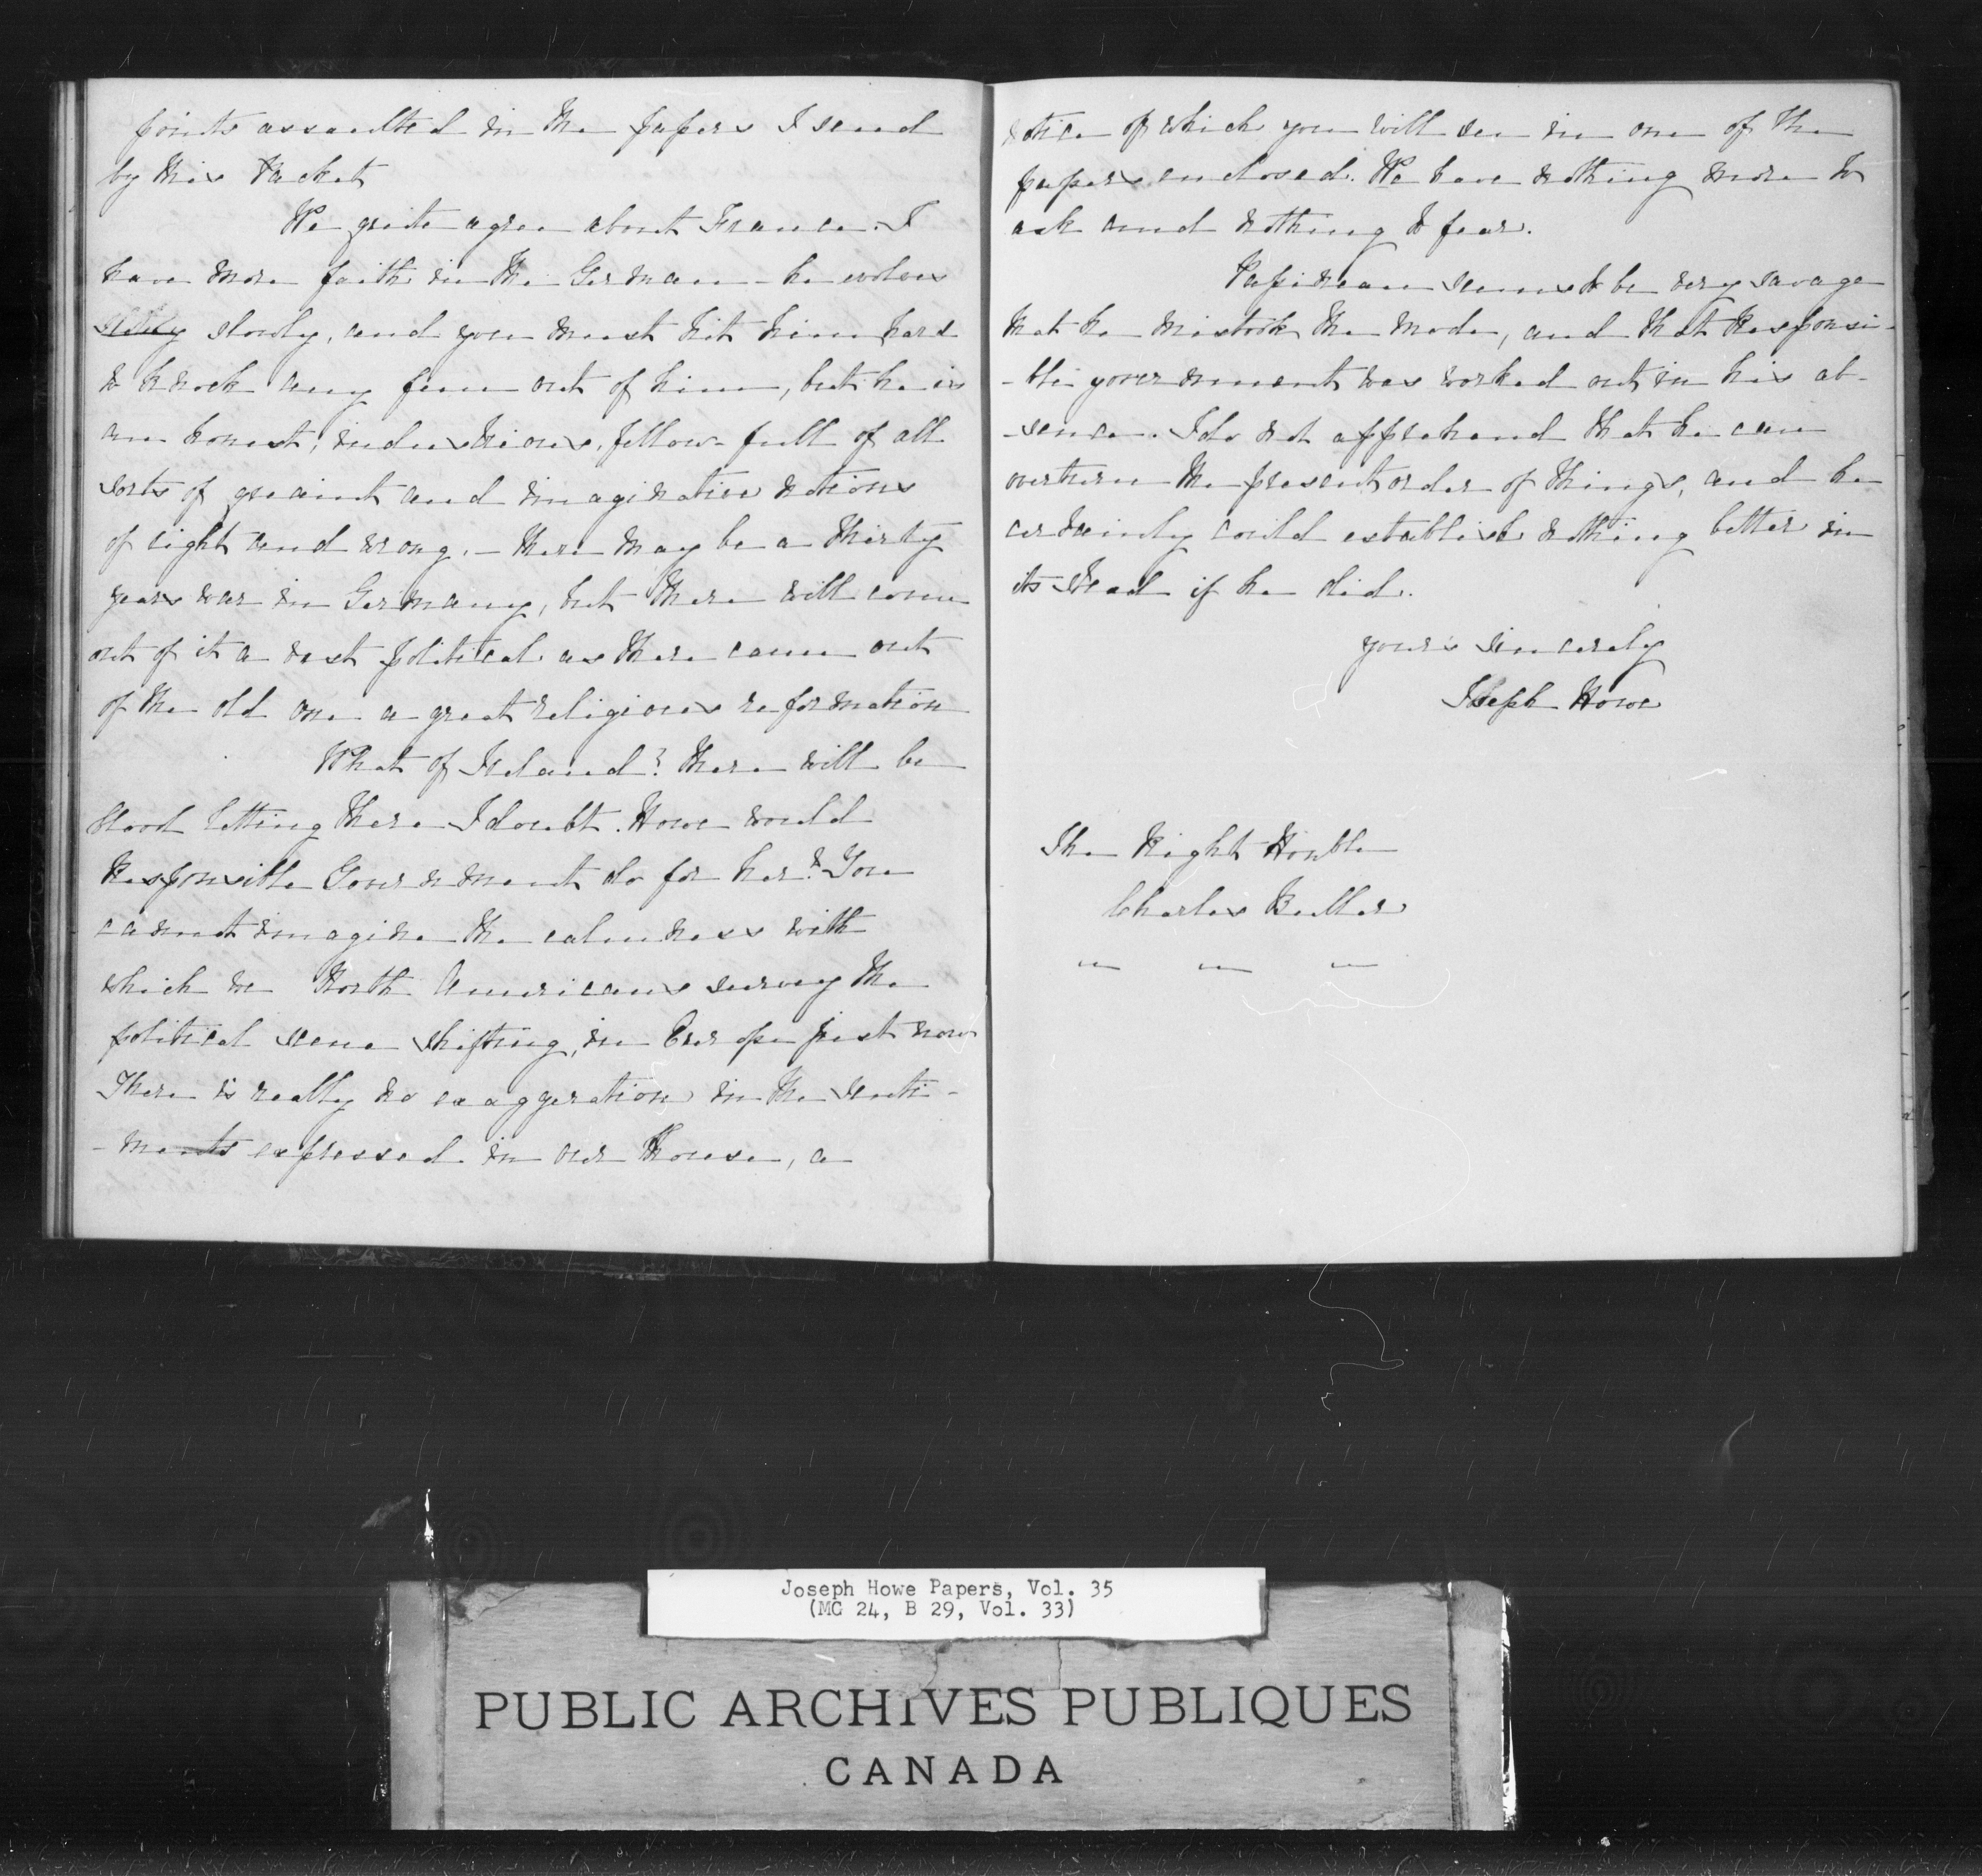 points assaulted in the papers I send
by this Packet
We quite agree about France. I
have more faith in the German - he evolves
slowly, and you must hit him hard
to knock any fun out of him, but he is
an honest, industrious, fellow - full of all
sorts of quaint and imaginative notions
of right and wrong. - there may be a thirty
years war in Germany, but there will come
out of it a vast political as there came out
of the old one a great religious reformation
What of Ireland? there will be
blood letting there I doubt. How would
Responsible Government do for her? You
cannot imagine the calmness with
which we North Americans survey the
political scene shifting, in Europe just now
There is really no exaggeration in the senti-
-ments expressed in our House, a
notice of which you will see in one of the
papers enclosed. We have nothing more to
ask and nothing to fear.
Papineau seems to be very savage
that he mistook the mode, and that Responsi-
-ble government was worked out in his ab-
-sence. I do not apprehend that he can
overturn the present order of things, and he
certainly could establish nothing better in
its stead if he did.
yours sincerely
Joseph Howe
The Right Honble
Charles Buller
" " "
Joseph Howe Papers, Vol. 35
(MG 24, B 29, Vol. 33)
PUBLIC ARCHIVES PUBLIQUES
CANADA